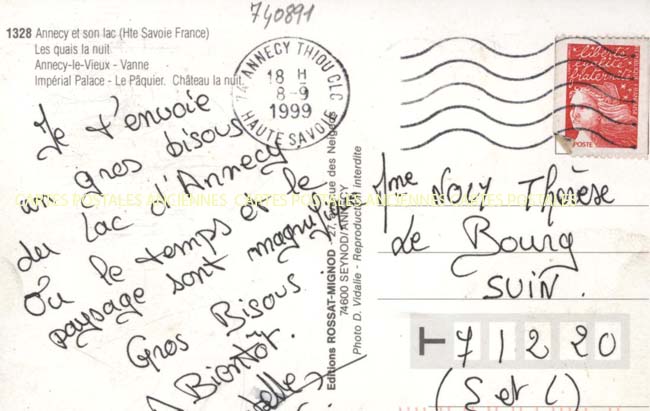 740891
1328 Annecy et son lac (Hte Savoie France)
Les quais la nuit
Annecy-le-Vieux - Vanne
Impérial Palace - Le Pâquier. Château la nuit
74 ANNECY THIOU CLC
18 H
8-9
1999
HAUTE SAVOIE
liberté
égalité
fraternité
POSTE
Je t'envoie
un gros bisous
du Lac d'Annecy
Où le temps et le
paysage sont magnifiques
Gros Bisous.
A Bientôt.
Editions ROSSAT-MIGNOD - 27, des Neiges
74600 SEYNOD/ANNECY
Photo D. Vidalie - Reproduction interdite
CARTES POSTALES ANCIENNES CARTES POSTALES ANCIENNES CARTES POSTALES
Mme Thérèse
Le Bourg
SUIN.
T 71220
(S et L)